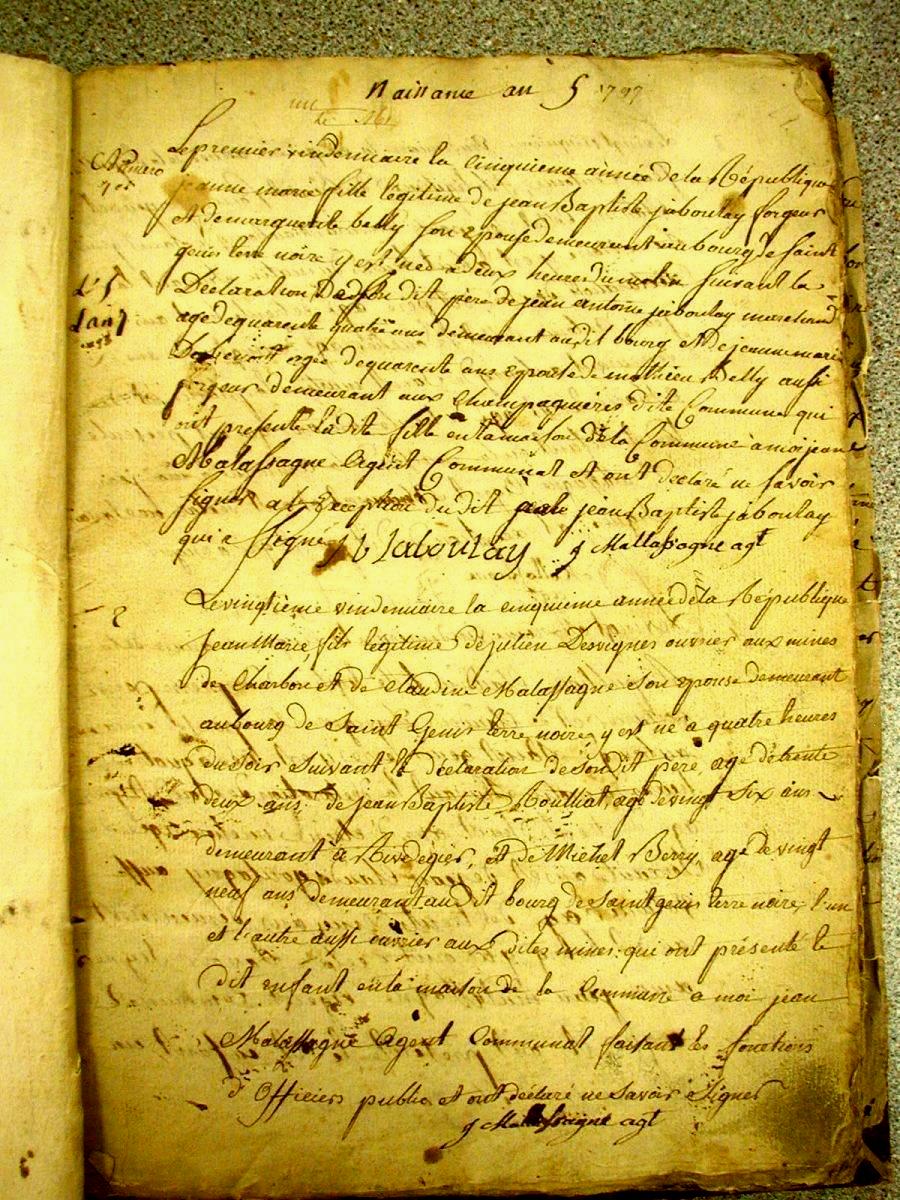 Naissance an 5 1797
Numero
Le premier vindemiaire la Cinquieme année de la République
jeanne marie fille légitime de jean Baptiste jaboulay forgeur
Et de marguerite belly son epouse demeurant au bourg de Saint
genis terre noire y est née a deux heures du matin suivant la
L'5
Déclaration de son dit père de jean antoine jaboulay marchand
L'an
agé de quarente quatre ans demeurant au dit bourg et de jeanne marie
agée de quarente ans epouse de mathieu belly aussi
forgeur demeurant aux Champagnières dite Commune qui
ont présenté la dite fille en la maison de la Commune à moi jean
Malassagne Agent Communal et ont declaré ne savoir
signer a l'exception du dit jean Baptiste jaboulay
qui a signé J b Jaboulay j Mallassagne agt
2
Le vingtieme vindemiaire la cinquieme année de la République
Jean Marie, fils légitime de julien Desvignes ouvrier aux mines
de Charbon et de Claudine Malassagne son epouse demeurant
au bourg de Saint Genis terre noire, y est né a quatre heures
du soir suivant la déclaration de son dit père, agé de trente
deux ans, de jean Baptiste Roulliat, agé de vingt six ans
demeurant à Rivedegier, et de Michel Berry, agé de vingt
neuf ans demeurant au dit bourg de Saint genis terre noire, l'un
et l'autre aussi ouvrier aux dites mines, qui ont présenté le
dit enfant en la maison de la Commune à moi jean
Malassagne Agent Communal faisant les fonctions
d'Officiers public et ont déclaré ne Savoir Signer
j Mallassagne agt